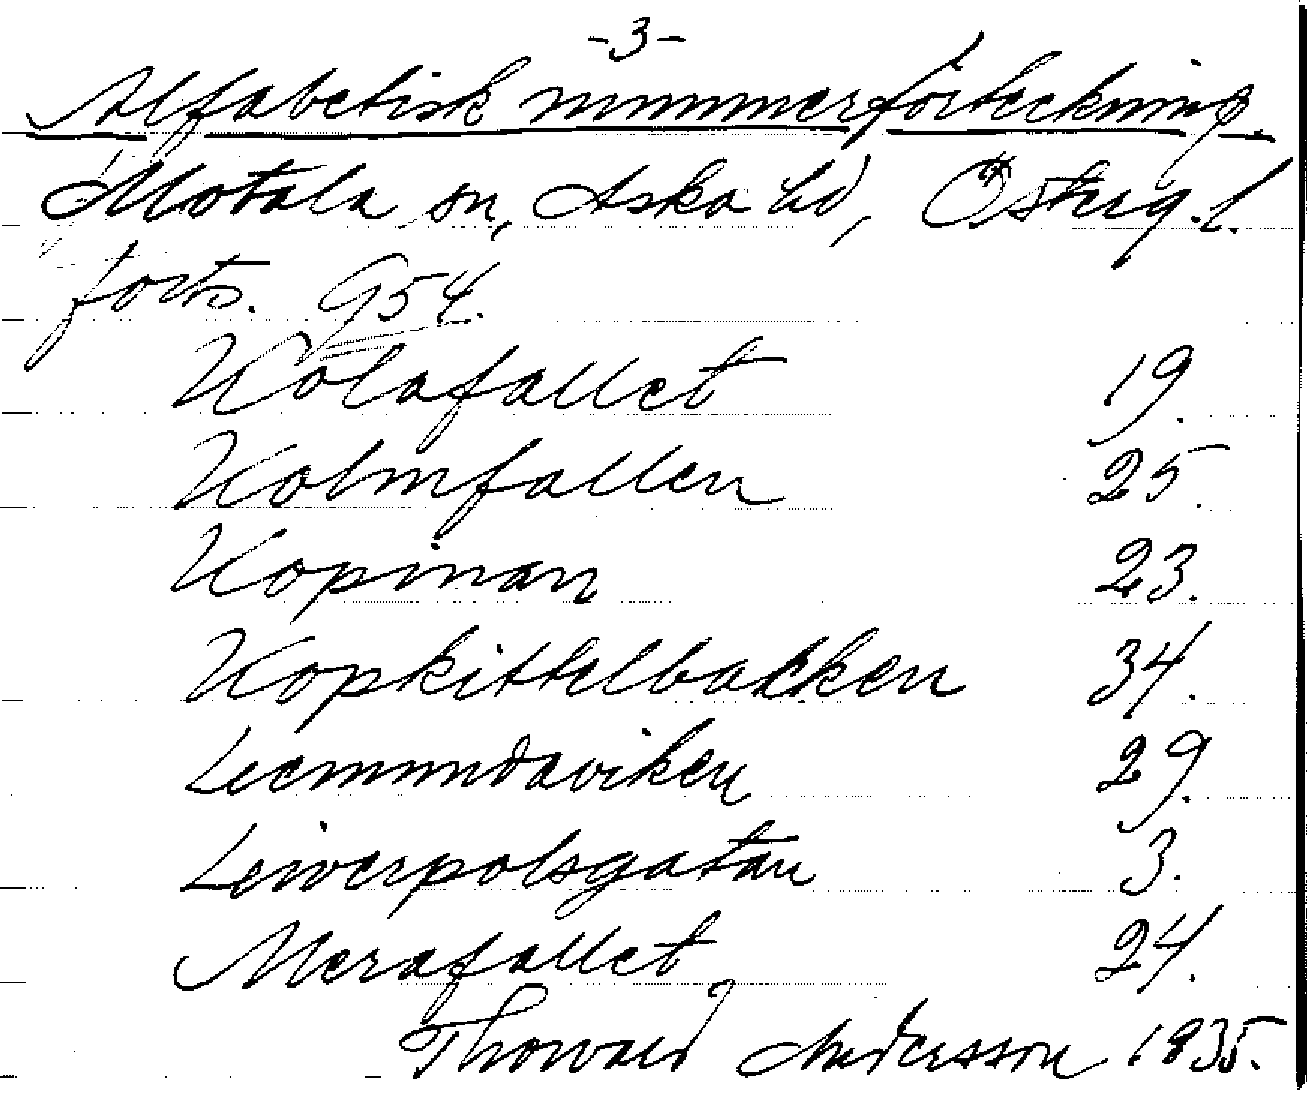 -3-
Alfabetisk nummerförteckning
Motala sn, Aska hd, Österg. l.
forts. 954.
Kolafallet 19.
Kolmfallen 25.
Kopinan 23.
Kopkittelbacken 34.
Leemundaviken 29.
Leiverpolsgatan 3.
Merafallet 24.
Thorvald Andersson 1935.